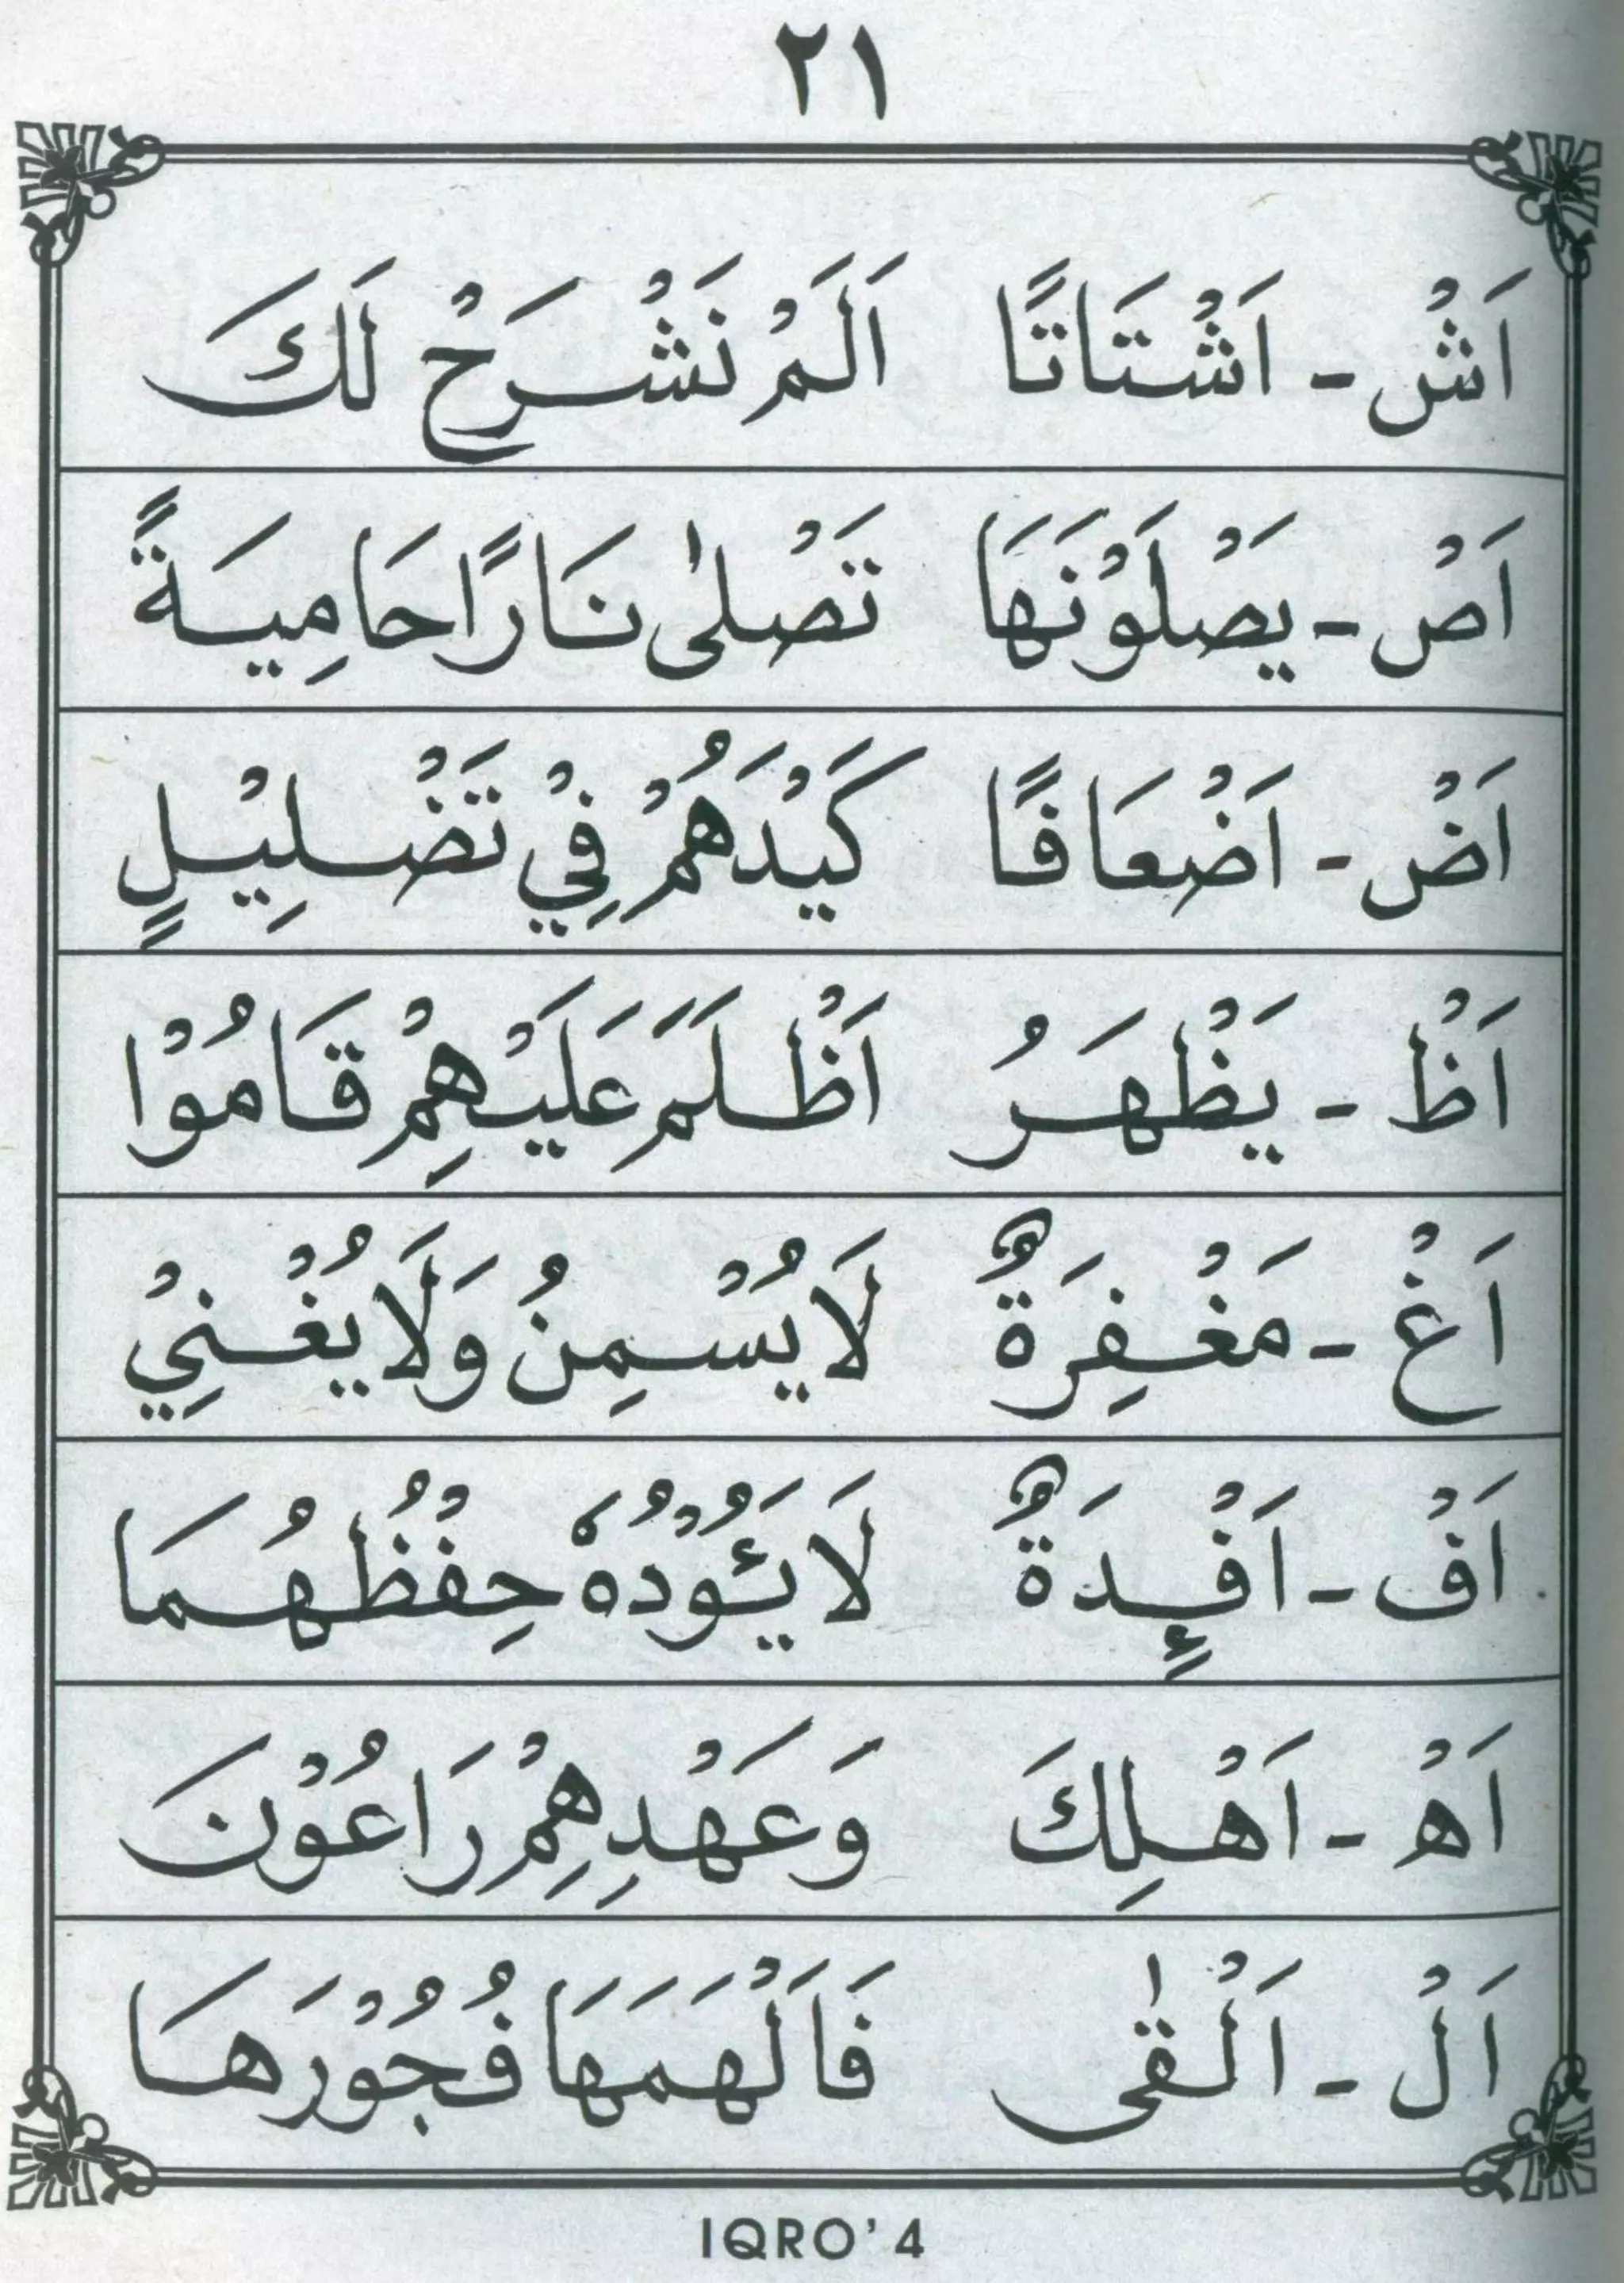 ٢١
اَشْ - اَشْتَاتًا اَلَمْ نَشْرَحْ لَكَ
اَصْ - يَصْلَوْنَهَا تَصْلٰى نَارًا حَامِيَةً
اَضْ - اَضْعَافًا كَيْدَهُمْ فِيْ تَضْلِيْلٍ
اَظْ - يَظْهَرُ اَظْلَمَ عَلَيْهِمْ قَامُوْا
اَغْ - مَغْفِرَةٌ لَا يُسْمِنُ وَلَا يُغْنِيْ
اَفْ - اَفْئِدَةٌ لَا يَئُوْدُهٗ حِفْظُهُمَا
اَهْ - اَهْلِكَ وَعَهْدِهِمْ رَاعُوْنَ
اَلْ - اَلْقٰى فَاَلْهَمَهَا فُجُوْرَهَا
IQRO' 4